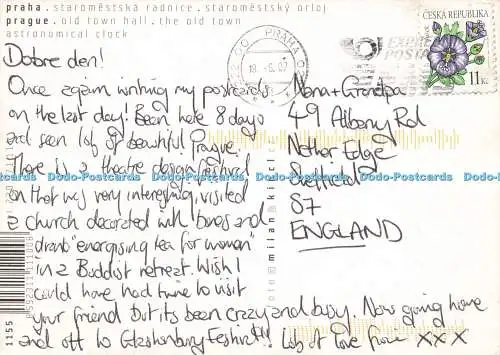 praha. staroměstská radnice. staroměstský orloj
prague. old town hall. the old town
astronomical clock
Dobre den!
Once again writing my postcards
on the last day! Been here 8 days
and seen lots of beautiful Prague.
There is a theatre design festival
on that was very interesting, visited
a church decorated with bones and
drank "energising tea for women"
in a Buddist retreat. Wish I
could have had time to visit
your friend but its been crazy and busy. Now going home
and off to Glastonbury Festival!! Lots of love from x x x
Nana + Grandpa
49 Albany Rd
Nether Edge
Sheffield
S7
ENGLAND
PRAHA
18.-6.07
ČESKÁ REPUBLIKA
11Kč
Dodo-Postcards Dodo-Postcards Dodo-Postcards Dodo-Postcards Dodo-Postcards
foto milan kincl
1155